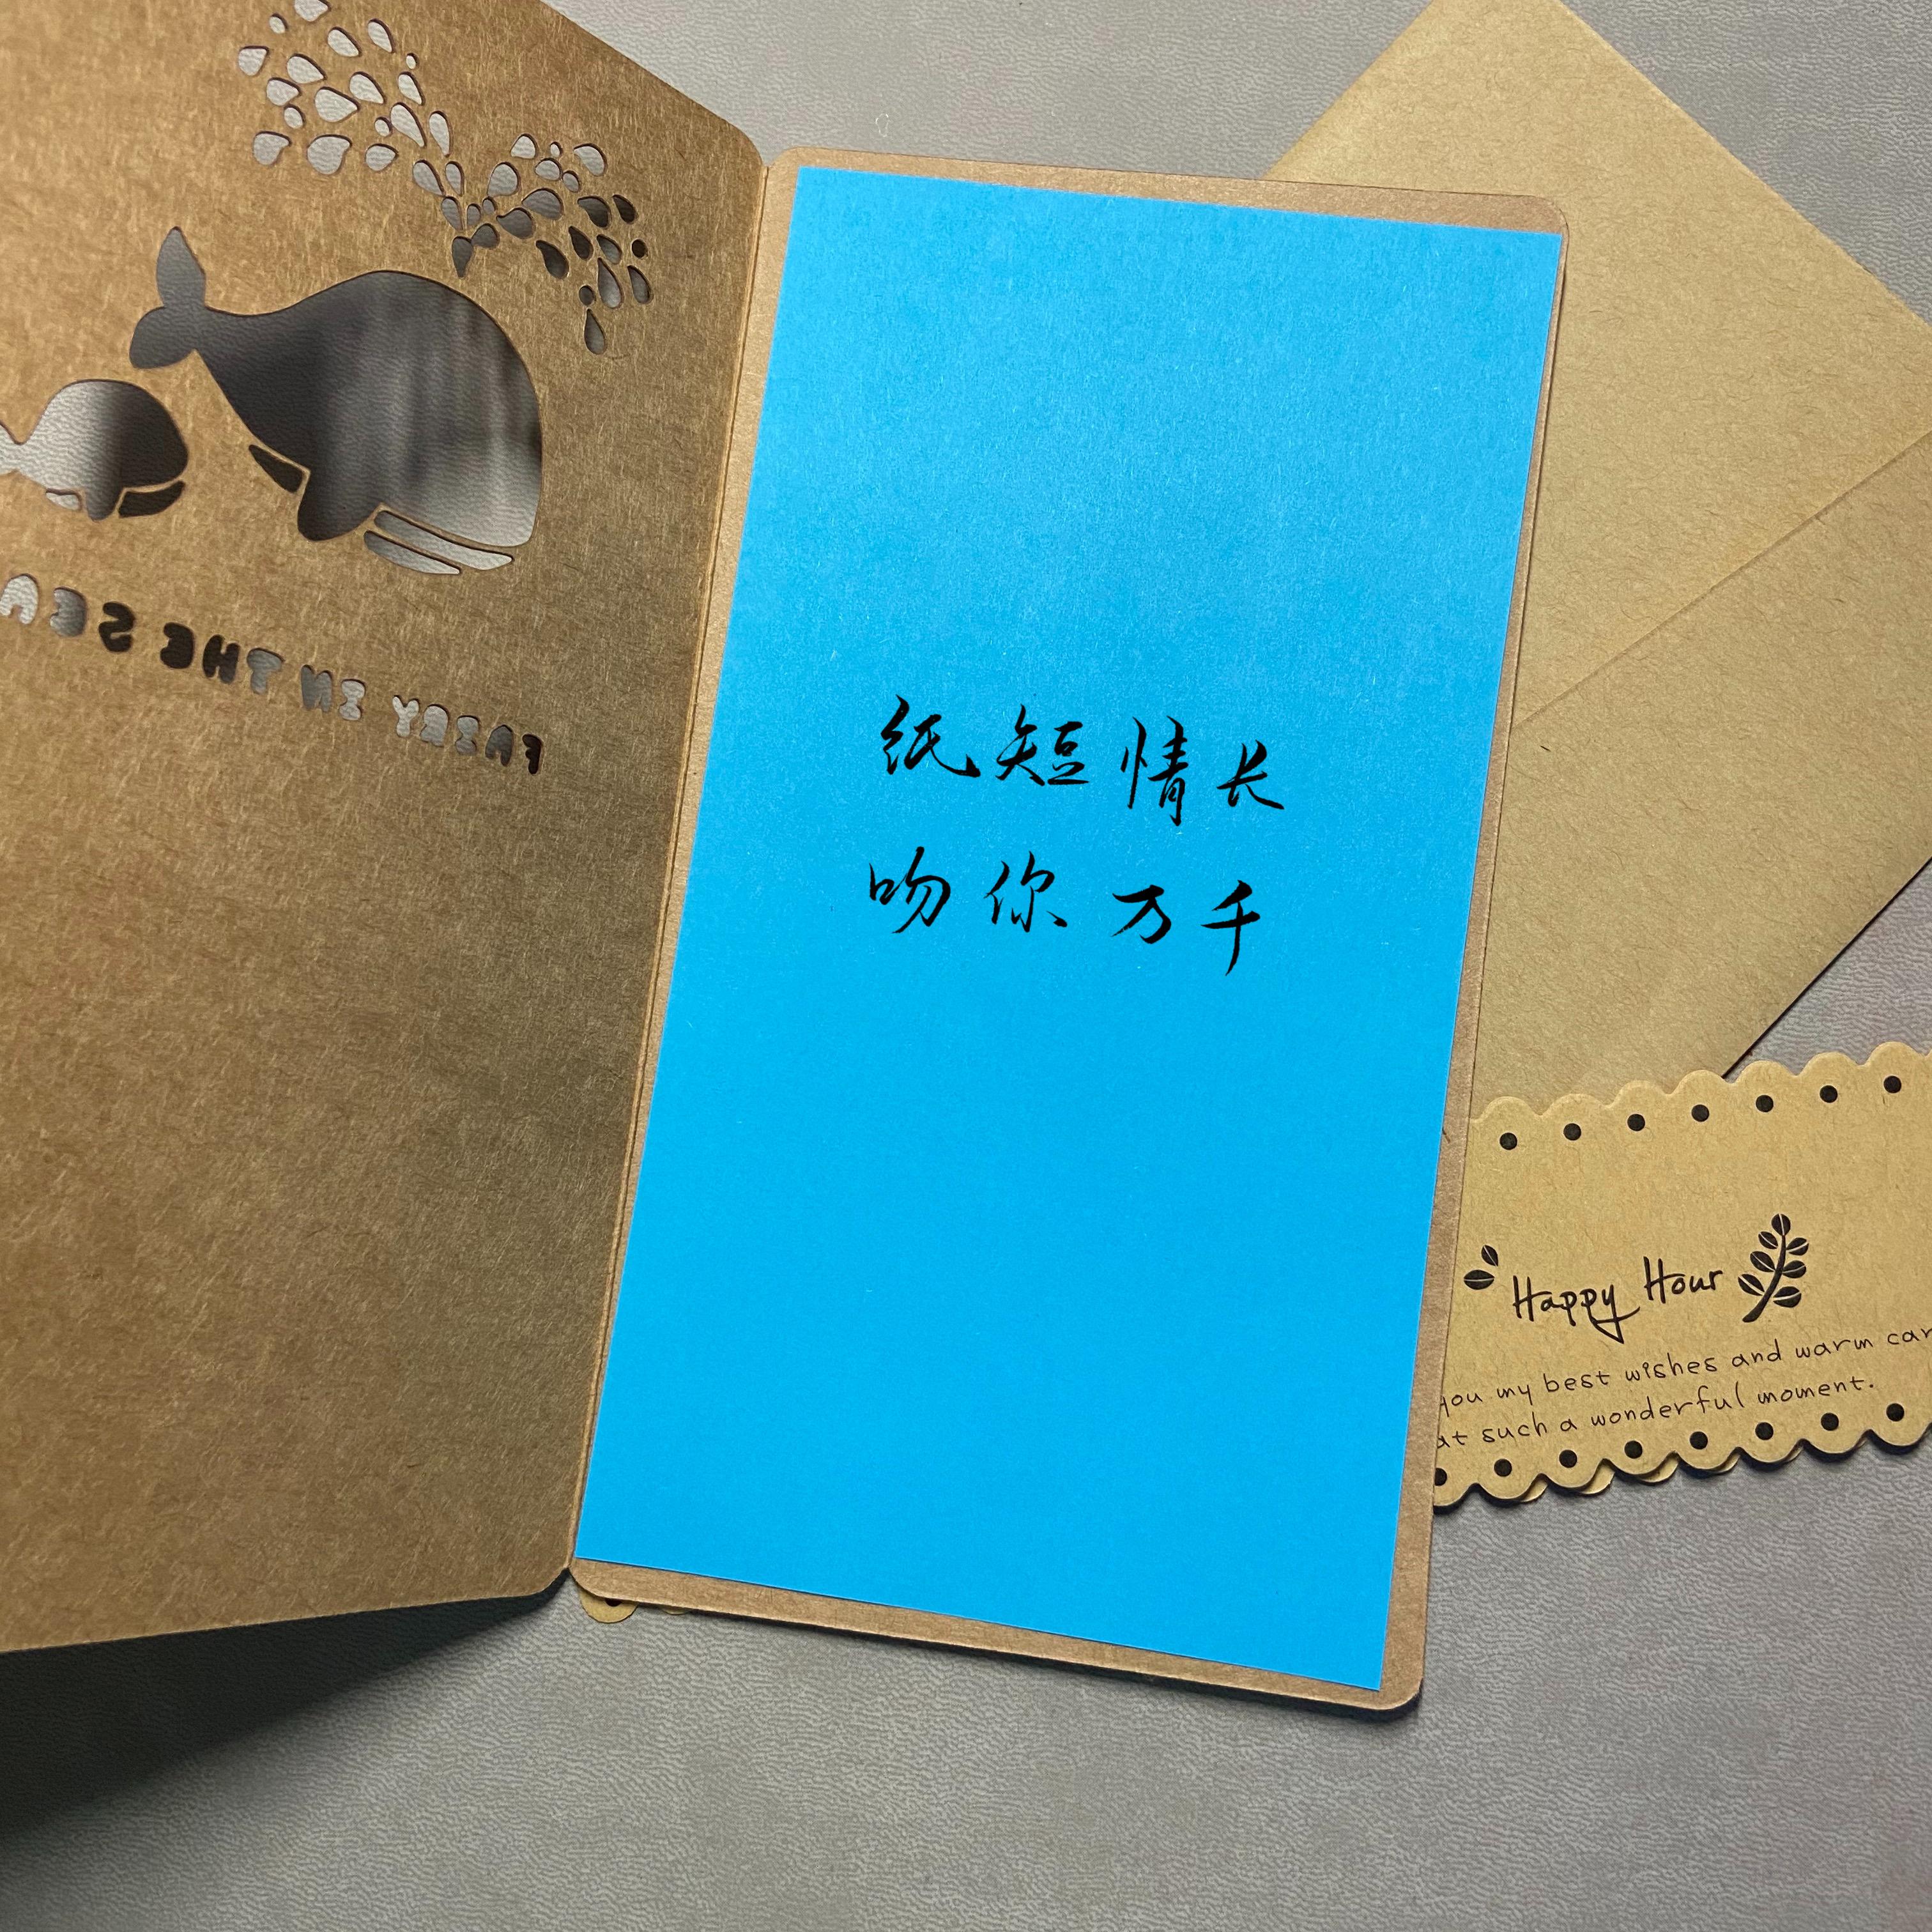 FAIRY IN THE SEA
纸短情长
吻你万千
Happy Hour
you my best wishes and warm
at such a wonderful moment.